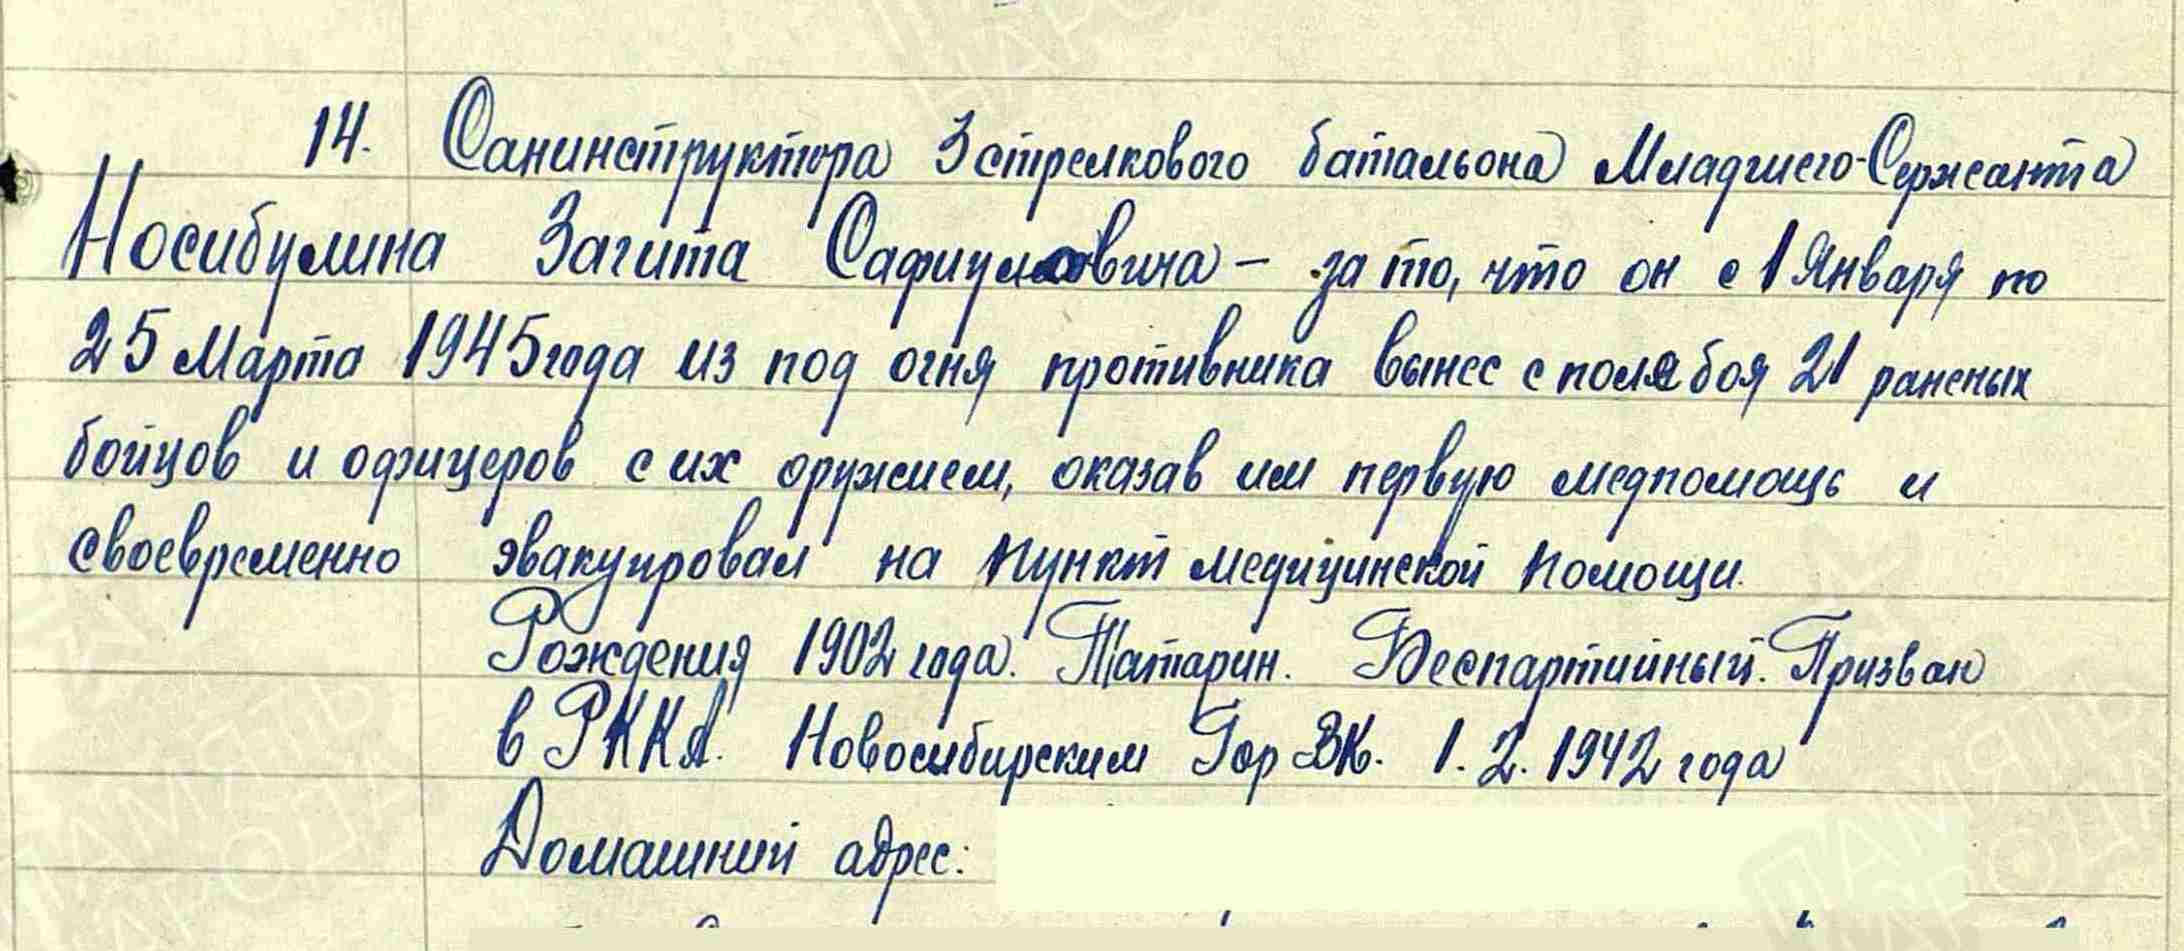 14. Санинструктора 3 стрелкового батальона Младшего-Сержанта
Носибулина Загита Сафиуловича - за то, что он с 1 Января по
25 Марта 1945 года из под огня противника вынес с поля боя 21 раненых
бойцов и офицеров с их оружием, оказав им первую медпомощь и
своевременно эвакуировал на пункт медицинской помощи.
Рождения 1902 года. Татарин. Беспартийный. Призван
в РККА. Новосибирским Гор ВК. 1.2.1942 года
Домашний адрес: